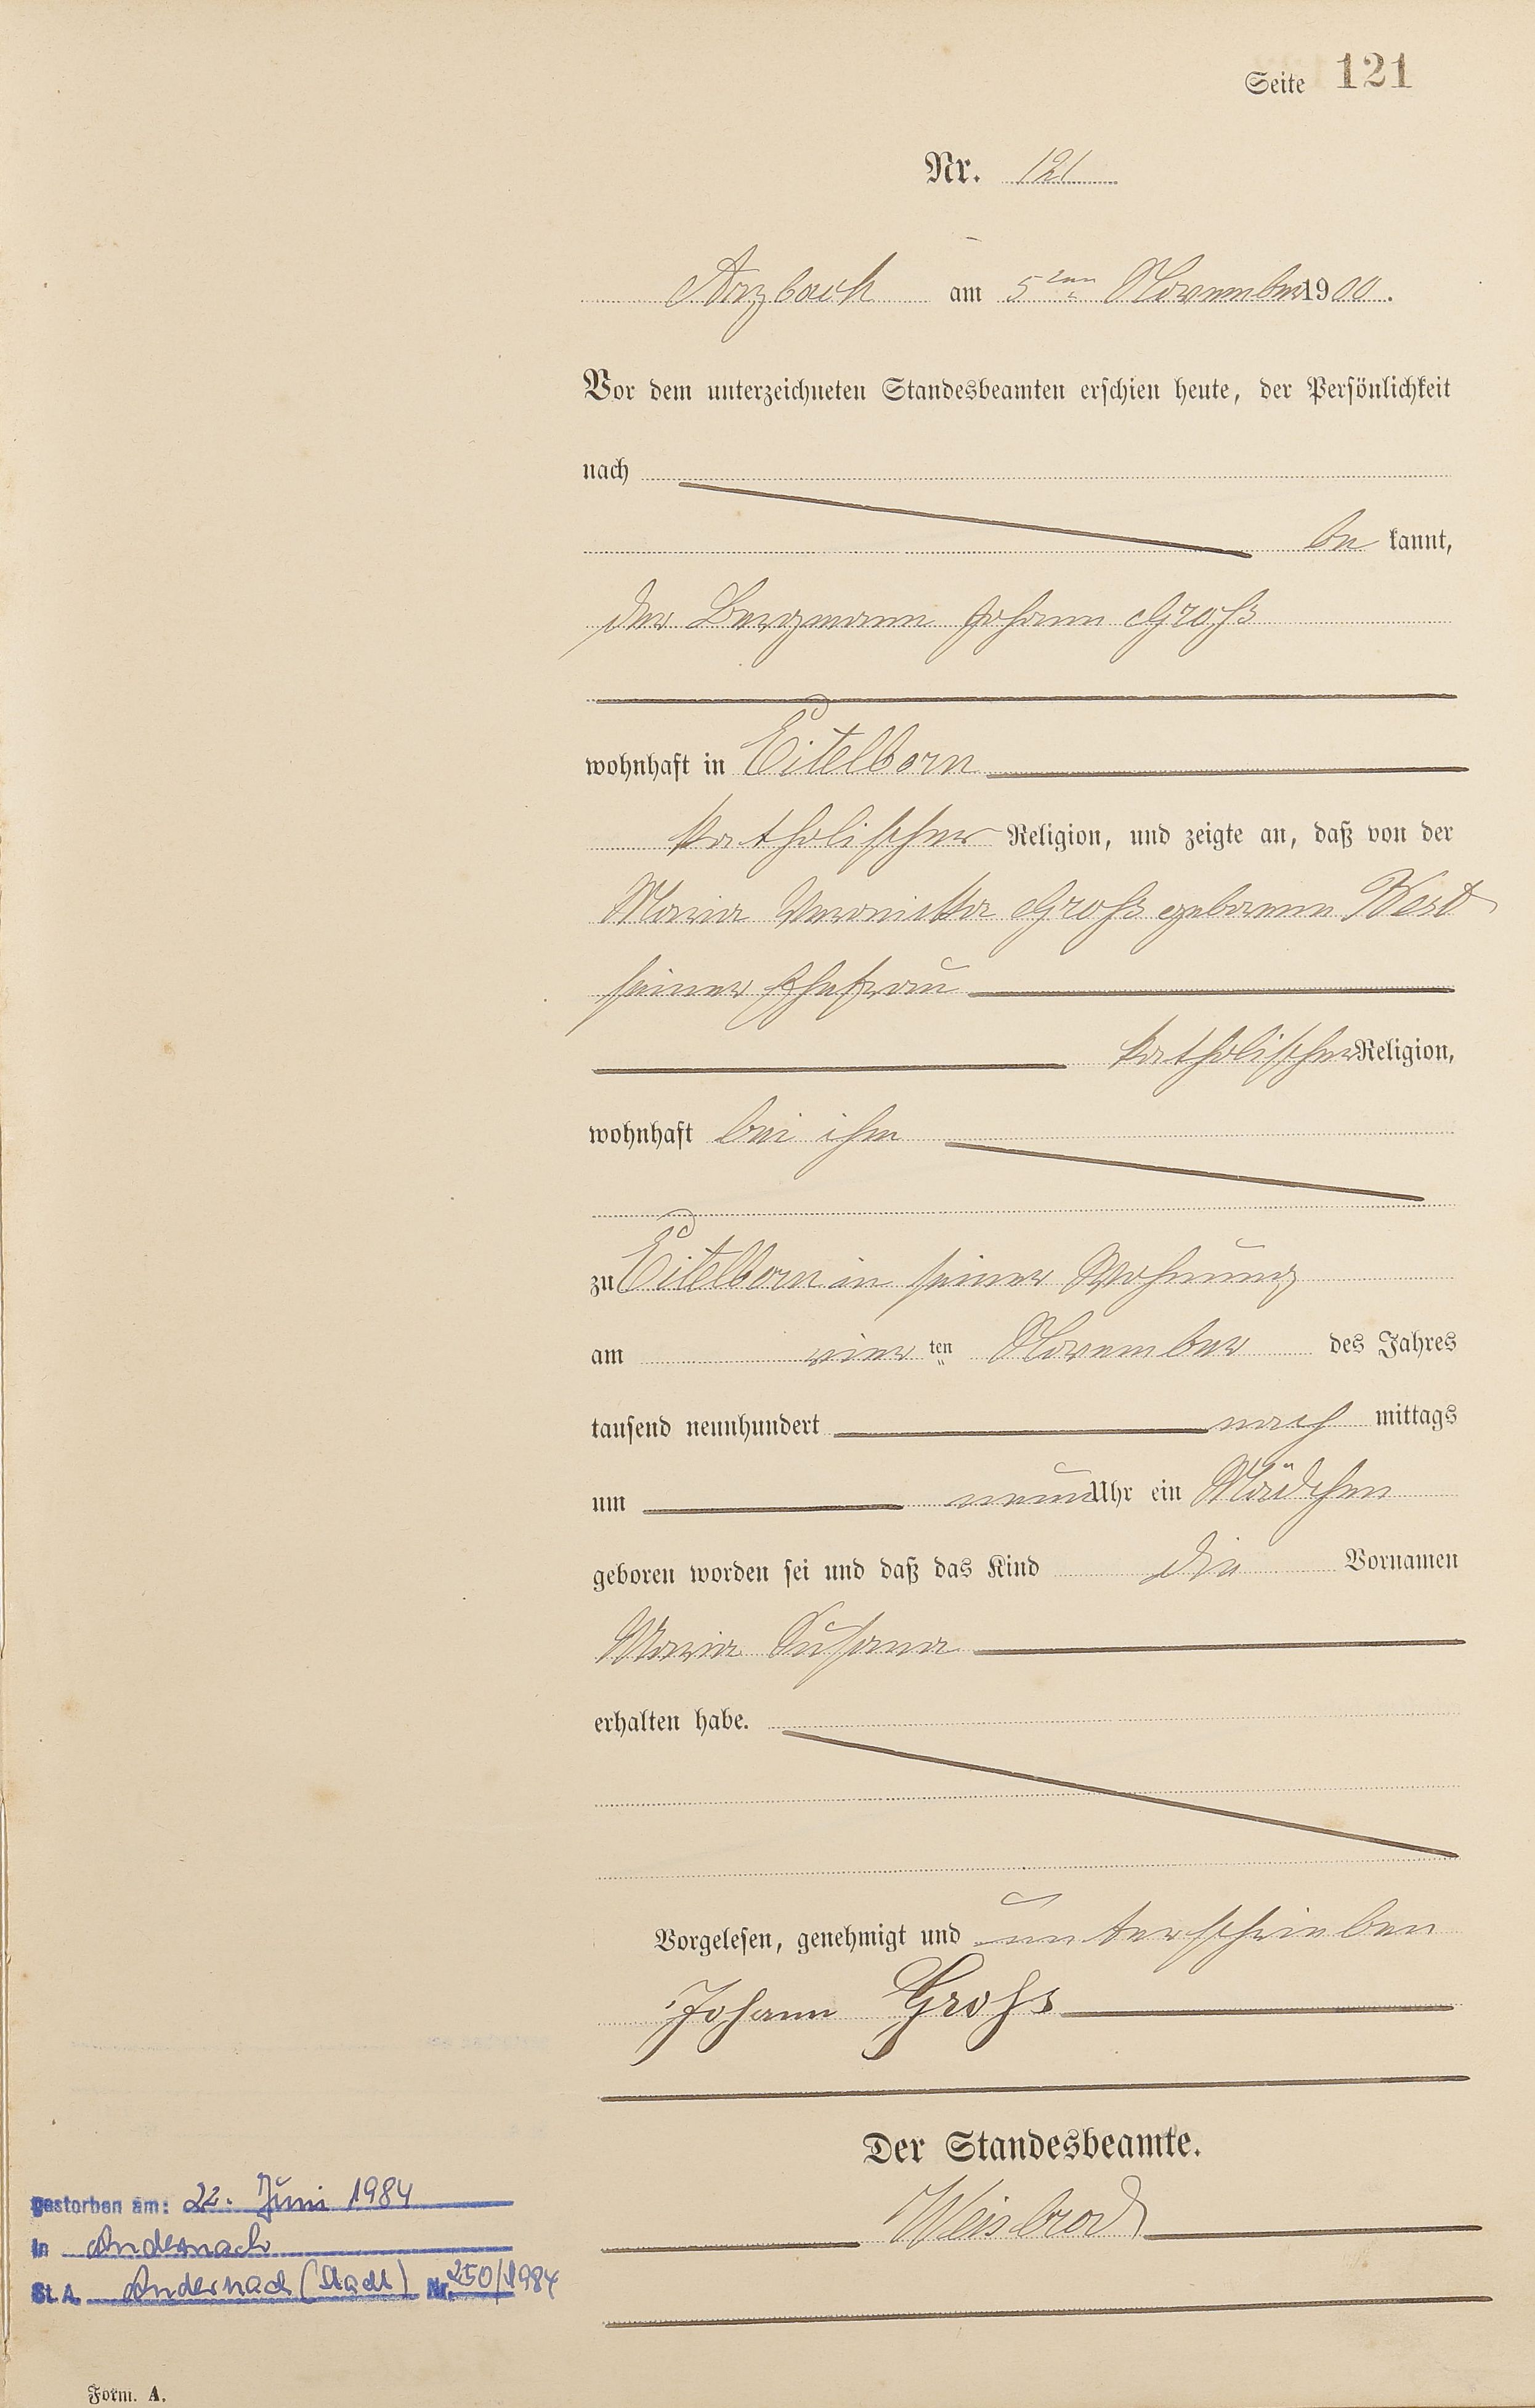 Seite 121
Nr. 121
Arzbach am 5ten November 1900.
Vor dem unterzeichneten Standesbeamten erschien heute, der Persönlichkeit
nach
be kannt,
der Bergmann Johann Groß
wohnhaft in Eitelborn
katholischer Religion, und zeigte an, daß von der
Maria Veronikka Groß geborenen
seiner Ehefrau
katholischer Religion,
wohnhaft bei ihm
zu Eitelborn in seiner Wohnung
am vier ten November des Jahres
tausend neunhundert nach mittags
um neun Uhr ein Mädchen
geboren worden sei und daß das Kind die Vornamen
Maria Susana
erhalten habe.
Vorgelesen, genehmigt und unterschrieben
Johann Groß
Der Standesbeamte.
Weisbrod
gestorben am: 22. Juni 1984
in Andernach
St. A. Andernach (Stadt) Nr. 250/1984
Form. A.